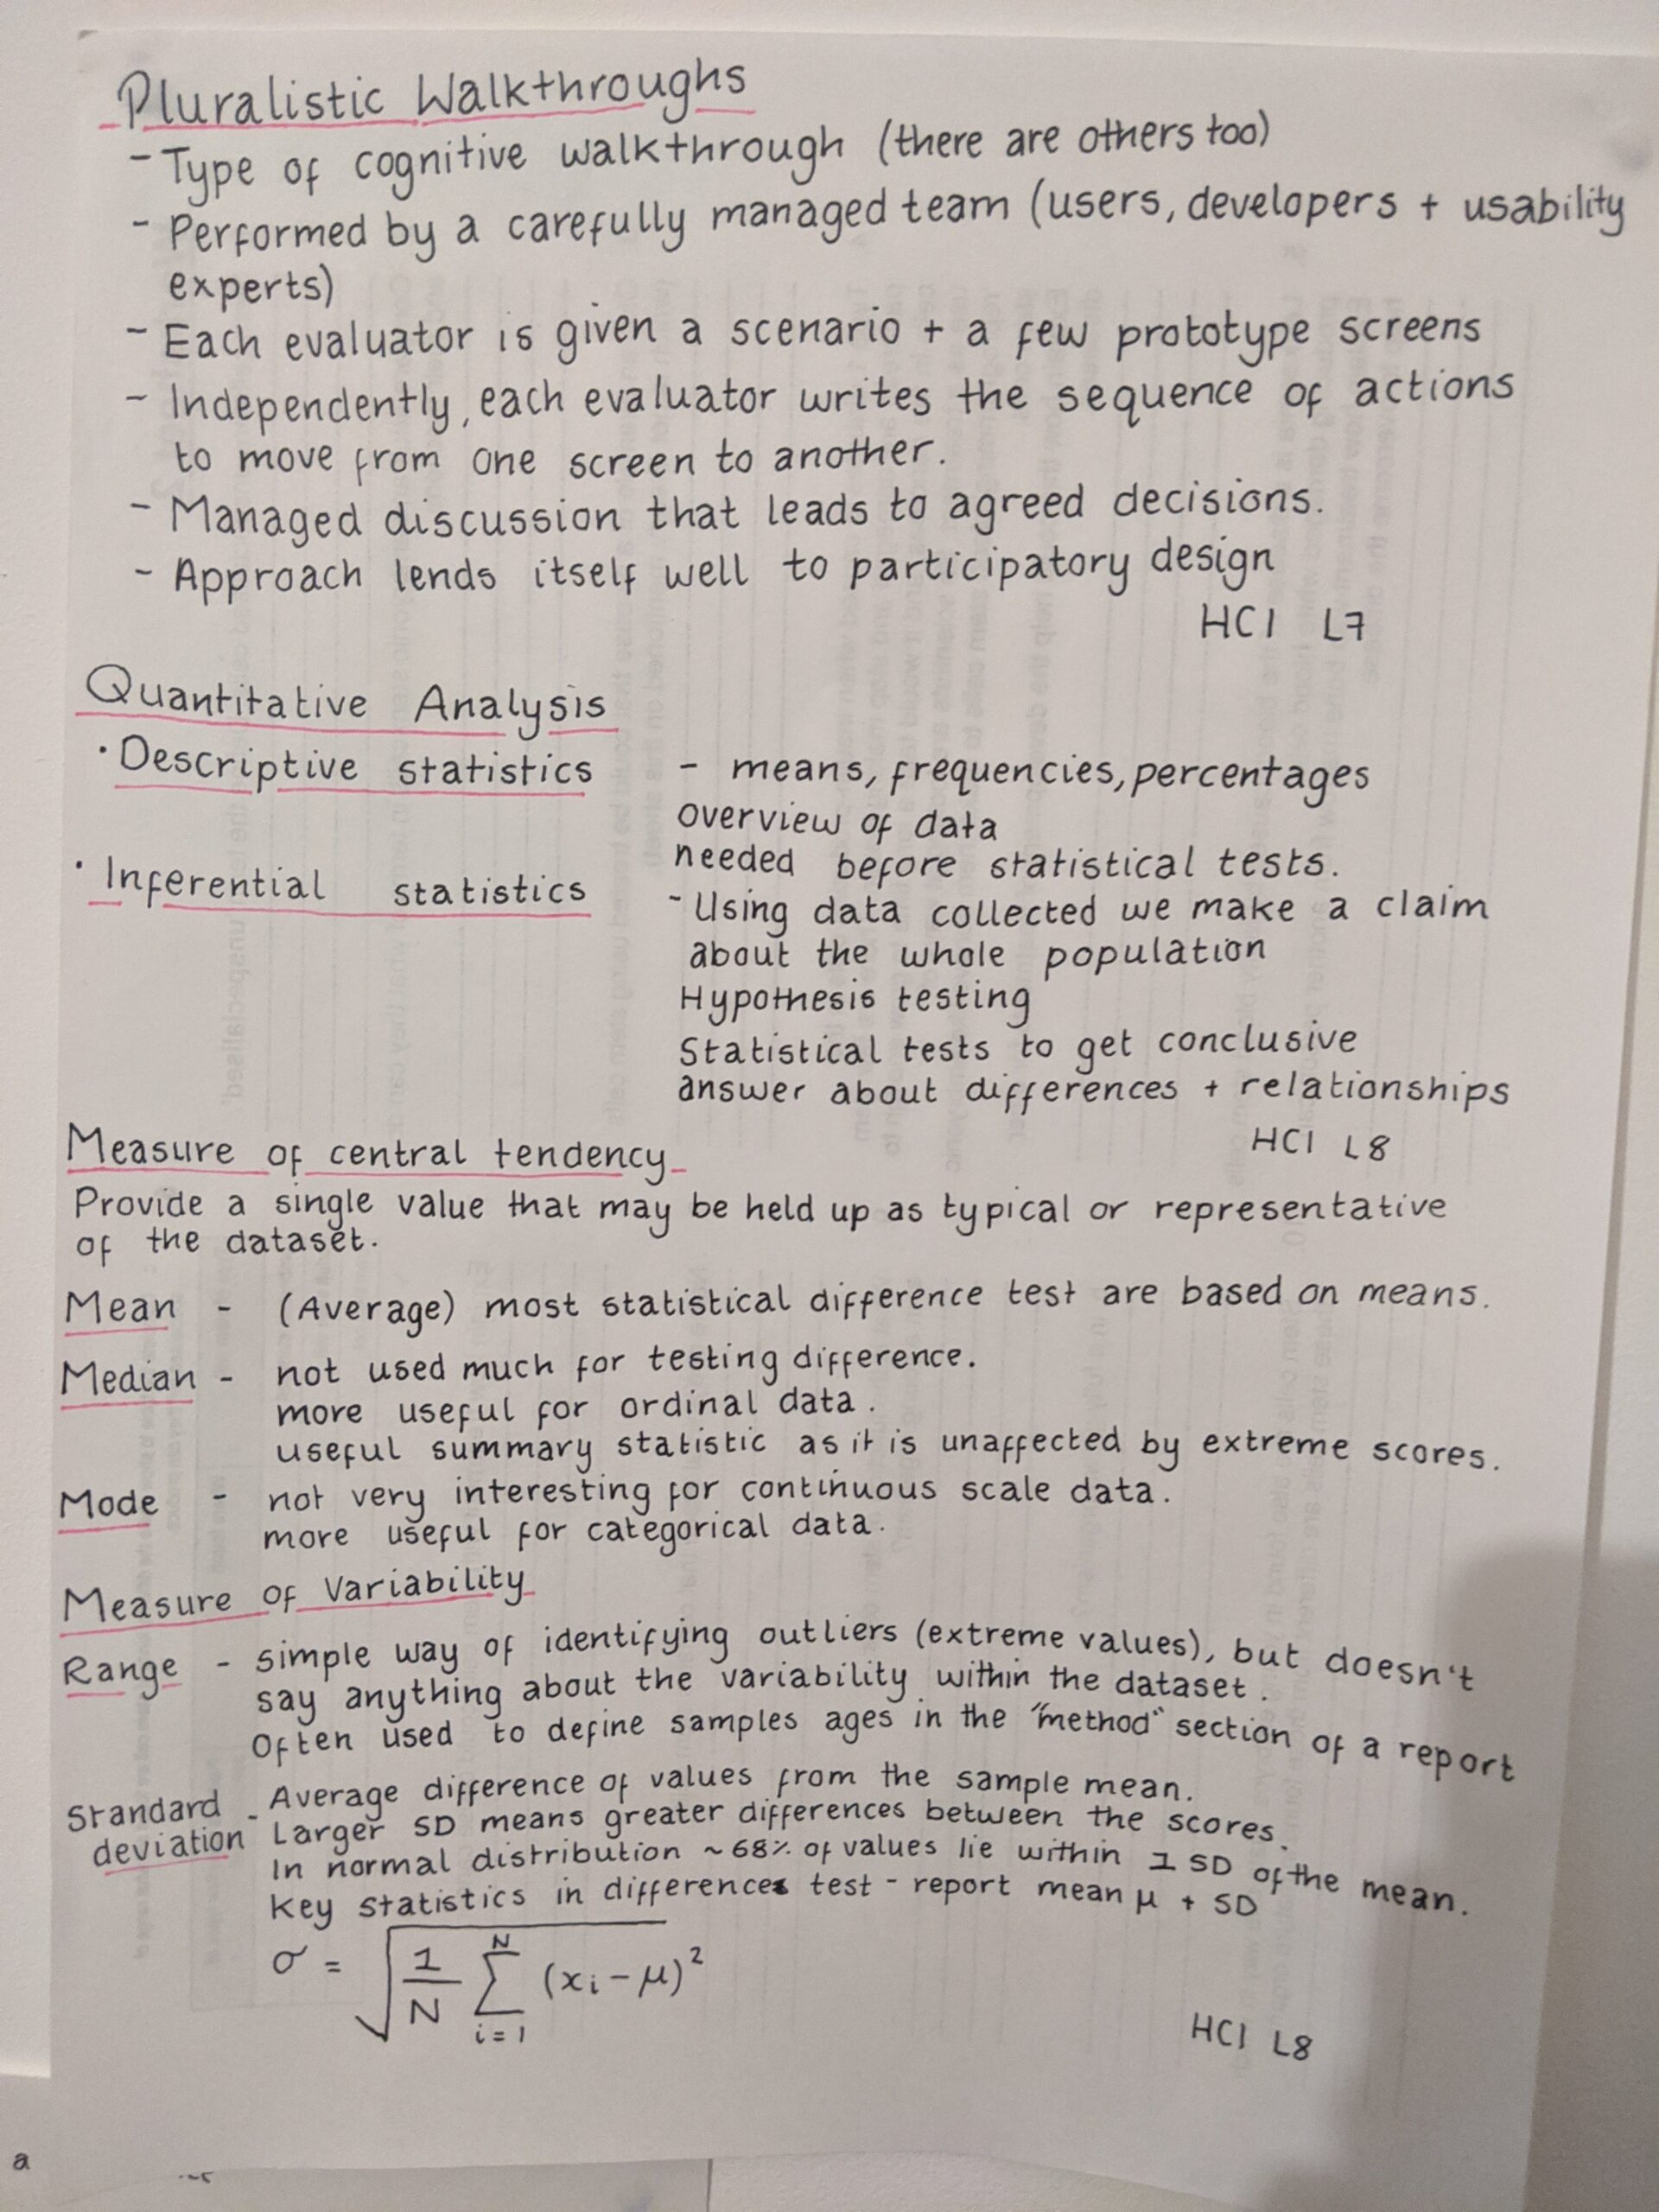 Pluralistic Walkthroughs
- Type of cognitive walkthrough (there are others too)
- Performed by a carefully managed team (users, developers + usability
experts)
- Each evaluator is given a scenario + a few prototype screens
- Independently, each evaluator writes the sequence of actions
to move from one screen to another.
- Managed discussion that leads to agreed decisions.
- Approach lends itself well to participatory design
HCI L7
Quantitative Analysis
· Descriptive statistics - means, frequencies, percentages
overview of data
needed before statistical tests.
· Inferential statistics
- Using data collected we make a claim
about the whole population
Hypothesis testing
Statistical tests to get conclusive
answer about differences + relationships
HCI L8
Measure of central tendency
Provide a single value that may be held up as typical or representative
of the dataset.
Mean - (Average) most statistical difference test are based on means.
Median - not used much for testing difference.
more useful for ordinal data.
useful summary statistic as it is unaffected by extreme scores.
Mode - not very interesting for continuous scale data.
more useful for categorical data.
Measure of Variability
Range - simple way of identifying outliers (extreme values), but doesn't
say anything about the variability within the dataset.
Often used to define samples ages in the "method" section of a report
Standard deviation - Average difference of values from the sample mean.
Larger SD means greater differences between the scores.
In normal distribution ~68% of values lie within 1 SD of the mean.
Key statistics in differences test - report mean μ + SD
σ = √(1/N ∑ i=1 N (xi - μ)²)
HCI L8
a